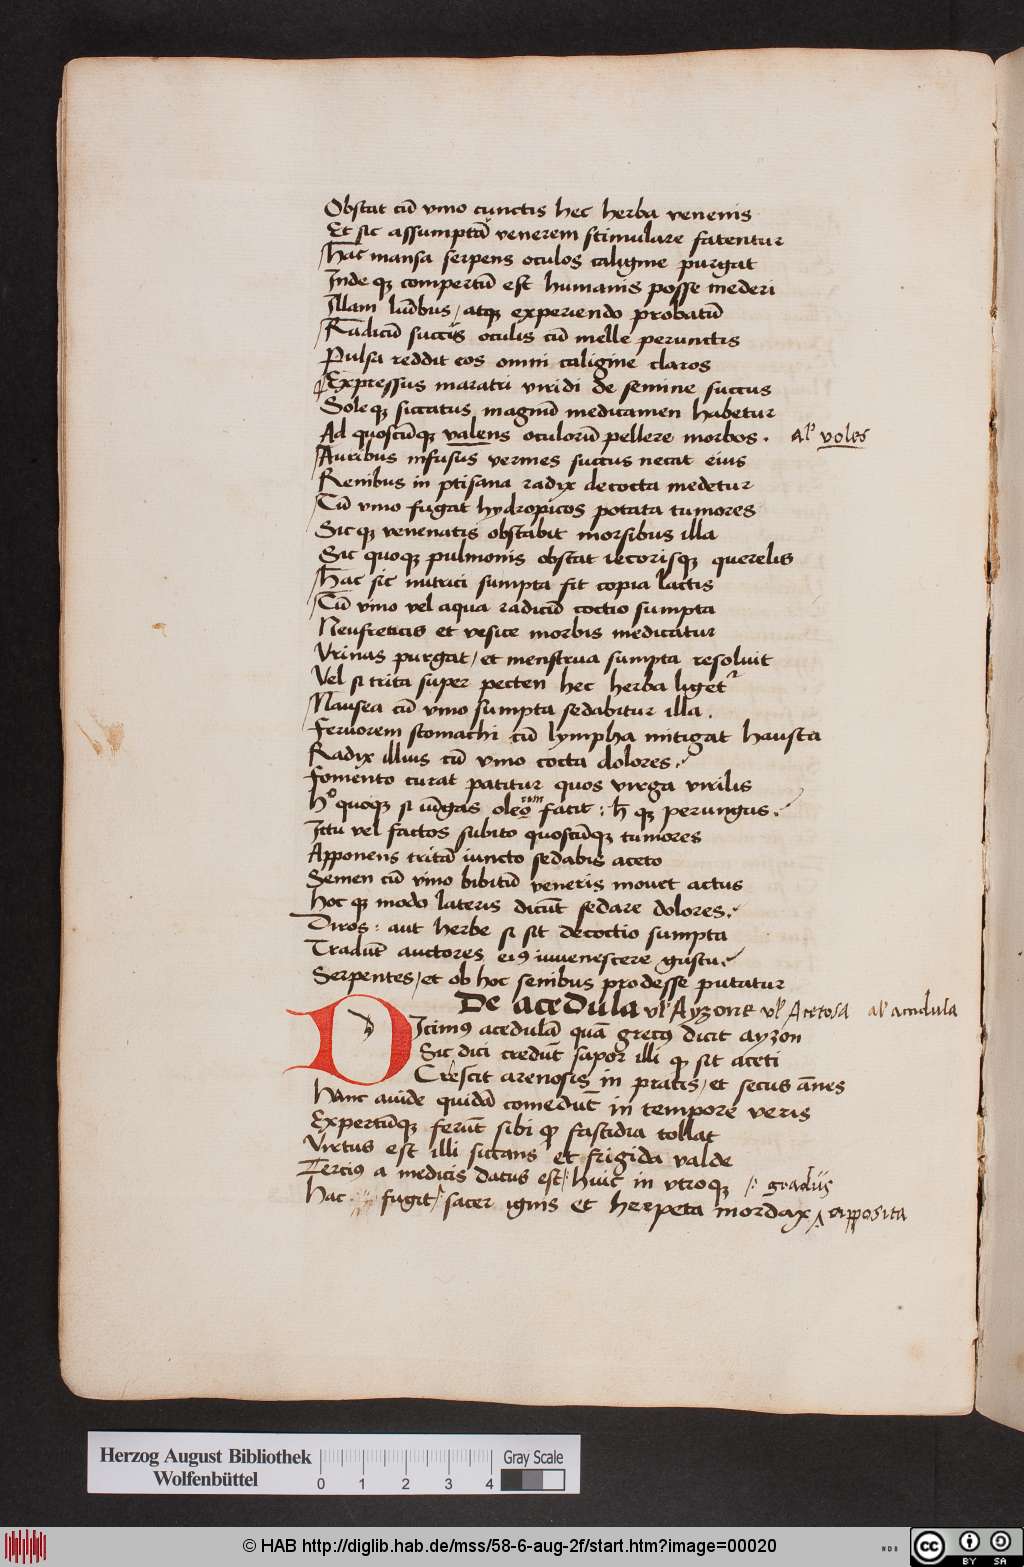 Obstat cū vino cunctis hec herba venenis
Et sic assumptā venerem stimulare fatentur
Hac mansa serpens oculos caligine purgat
Inde qꝫ compertū est humanis posse mederi
Illam lūībus / atqꝫ experiendo probatū
Radicū succus oculis cū melle perunctis
Pulsa reddit eos omni caligine claros
Expressus maratri viridi de semine succus
Soleqꝫ siccatus magnū medicamen habetur
Ad quoscūqꝫ valens oculorū pellere morbos . al' voles
Auribus infusus vermes succus necat eius
Renibus in ptisana radix decocta medetur
Cū vino fugat hydropicos potata tumores
Sicqꝫ venenatis obstabit morsibus illa
Sic quoqꝫ pulmonis obstat iecorisqꝫ querelis
Hac sic nutrici sumpta fit copia lactis
Cū vino vel aqua radicū coctio sumpta
Neufreticis et vesice morbis medicatur
Urinas purgat / et menstrua sumpta resoluit
Vel si trita super pecten hec herba liget^r
Nausea cū vino sumpta sedabitur illa .
Feruorem stomachi cū lympha mitigat hausta
Radix illius cū vino cocta dolores
Fomento curat patitur quos virga virilis
h^o quoqꝫ si iūgas oleo facit : h̄ qꝫ perungas
Ictu vel factos subito quoscūqꝫ tumores
Apponens tritā iuncto sedabis aceto
Semen cū vino bibitū veneris mouet actus
Hoc qꝫ modo lateris dicūt sedare dolores
Diros : aut herbe si sit decoctio sumpta
Tradūt auctores ei9 iuuenescere gustu
Serpentes / et ob hoc senibus prodesse putatur
De acedula vl' Ayzone vl' Acetosa al' acidula
Dicim9 acedulā quā grec9 dicit ayzon
Sic dici credūt sapor illi qꝫ sit aceti
Crescit arenosis in pratis / et secus ānes
Hanc auide quidā comedūt in tempore veris
Expertūqꝫ ferūt sibi qꝫ fastidia tollat
Virtus est illi siccans et frigida valde
Terci9 a medicis datus est huic in vtroqꝫ gradus
Hac fugit sacer ignis et herpeta mordax apposita
Herzog August Bibliothek
Wolfenbüttel
0 1 2 3 4
Gray Scale
© HAB http://diglib.hab.de/mss/58-6-aug-2f/start.htm?image=00020
cc BY SA